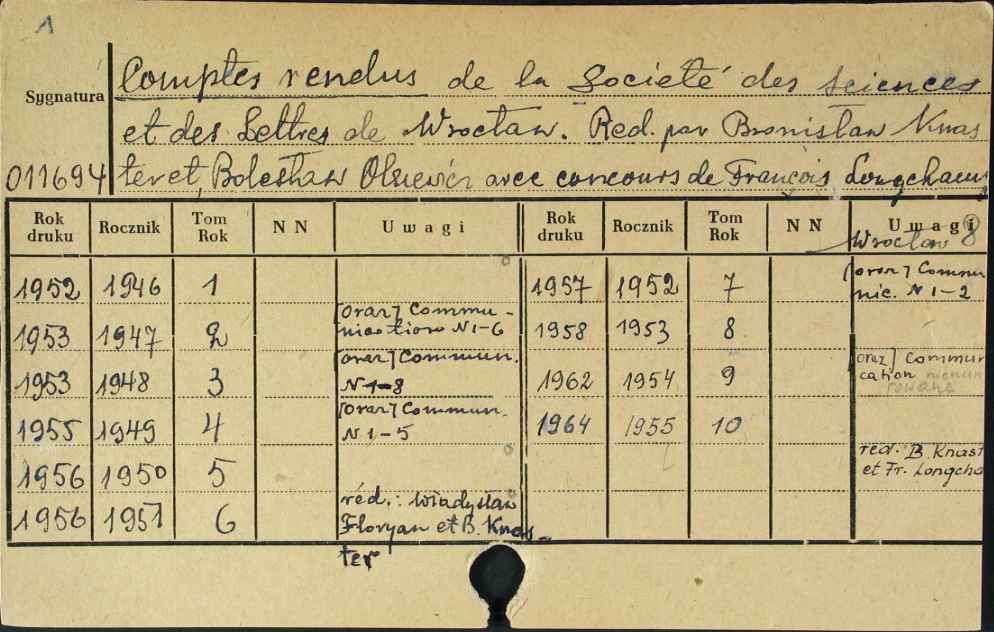 1
Comptes rendus de la Société des Sciences
Sygnatura
et des Lettres de Wrocław. Red. par Bronisław Knas
011694 ter et Bolesław Olszewicz avec concours de François Longchamps
Rok druku Rocznik Tom Rok NN Uwagi Rok druku Rocznik Tom Rok NN Uwagi
Wrocław 8
1952 1946 1 1957 1952 7 [oraz] Commu
nic. N 1-2
1953 1947 2 [oraz] Commu-
nication N 1-6 1958 1953 8
1953 1948 3 [oraz] Commun.
N 1-8 1962 1954 9 [oraz] Commun
cation nienume
rowane
1955 1949 4 [oraz] Commun.
N 1-5 1964 1955 10
1956 1950 5 red. B. Knast
et Fr. Longcha
1956 1951 6 réd.: Władysław
Floryan et B. Knas-
ter